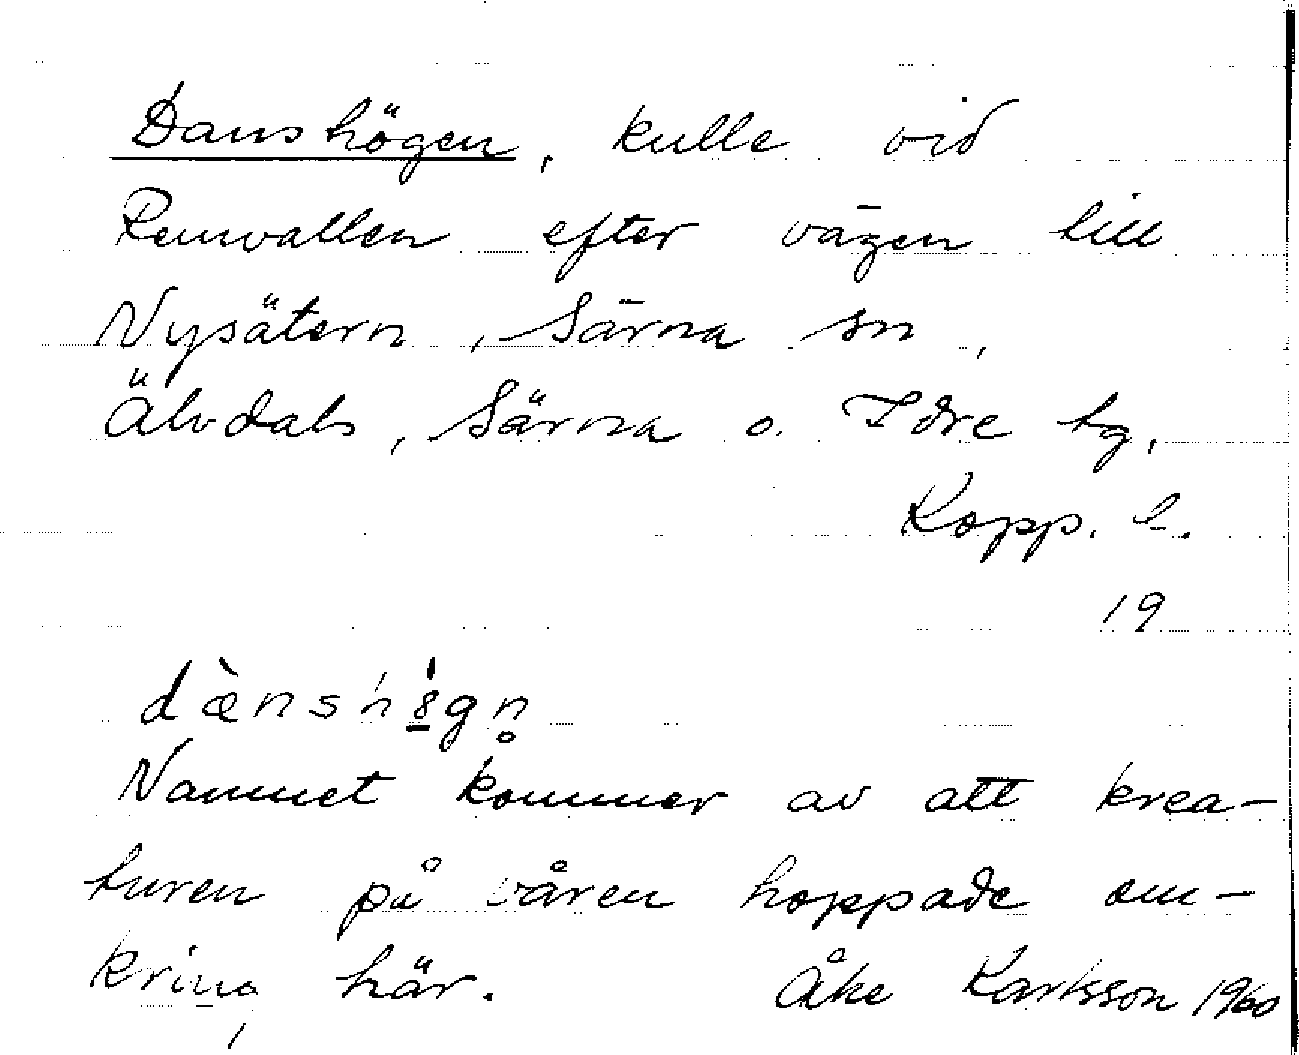 Danshögen, kulle vid
Renvallen efter vägen till
Nysätern, Särna sn,
Älvdals, Särna o. Idre tg,
Kopp. l.
19
dæ̀nshög̀n̥
Namnet kommer av att krea-
turen på våren hoppade om-
kring här. Åke Karlsson 1960